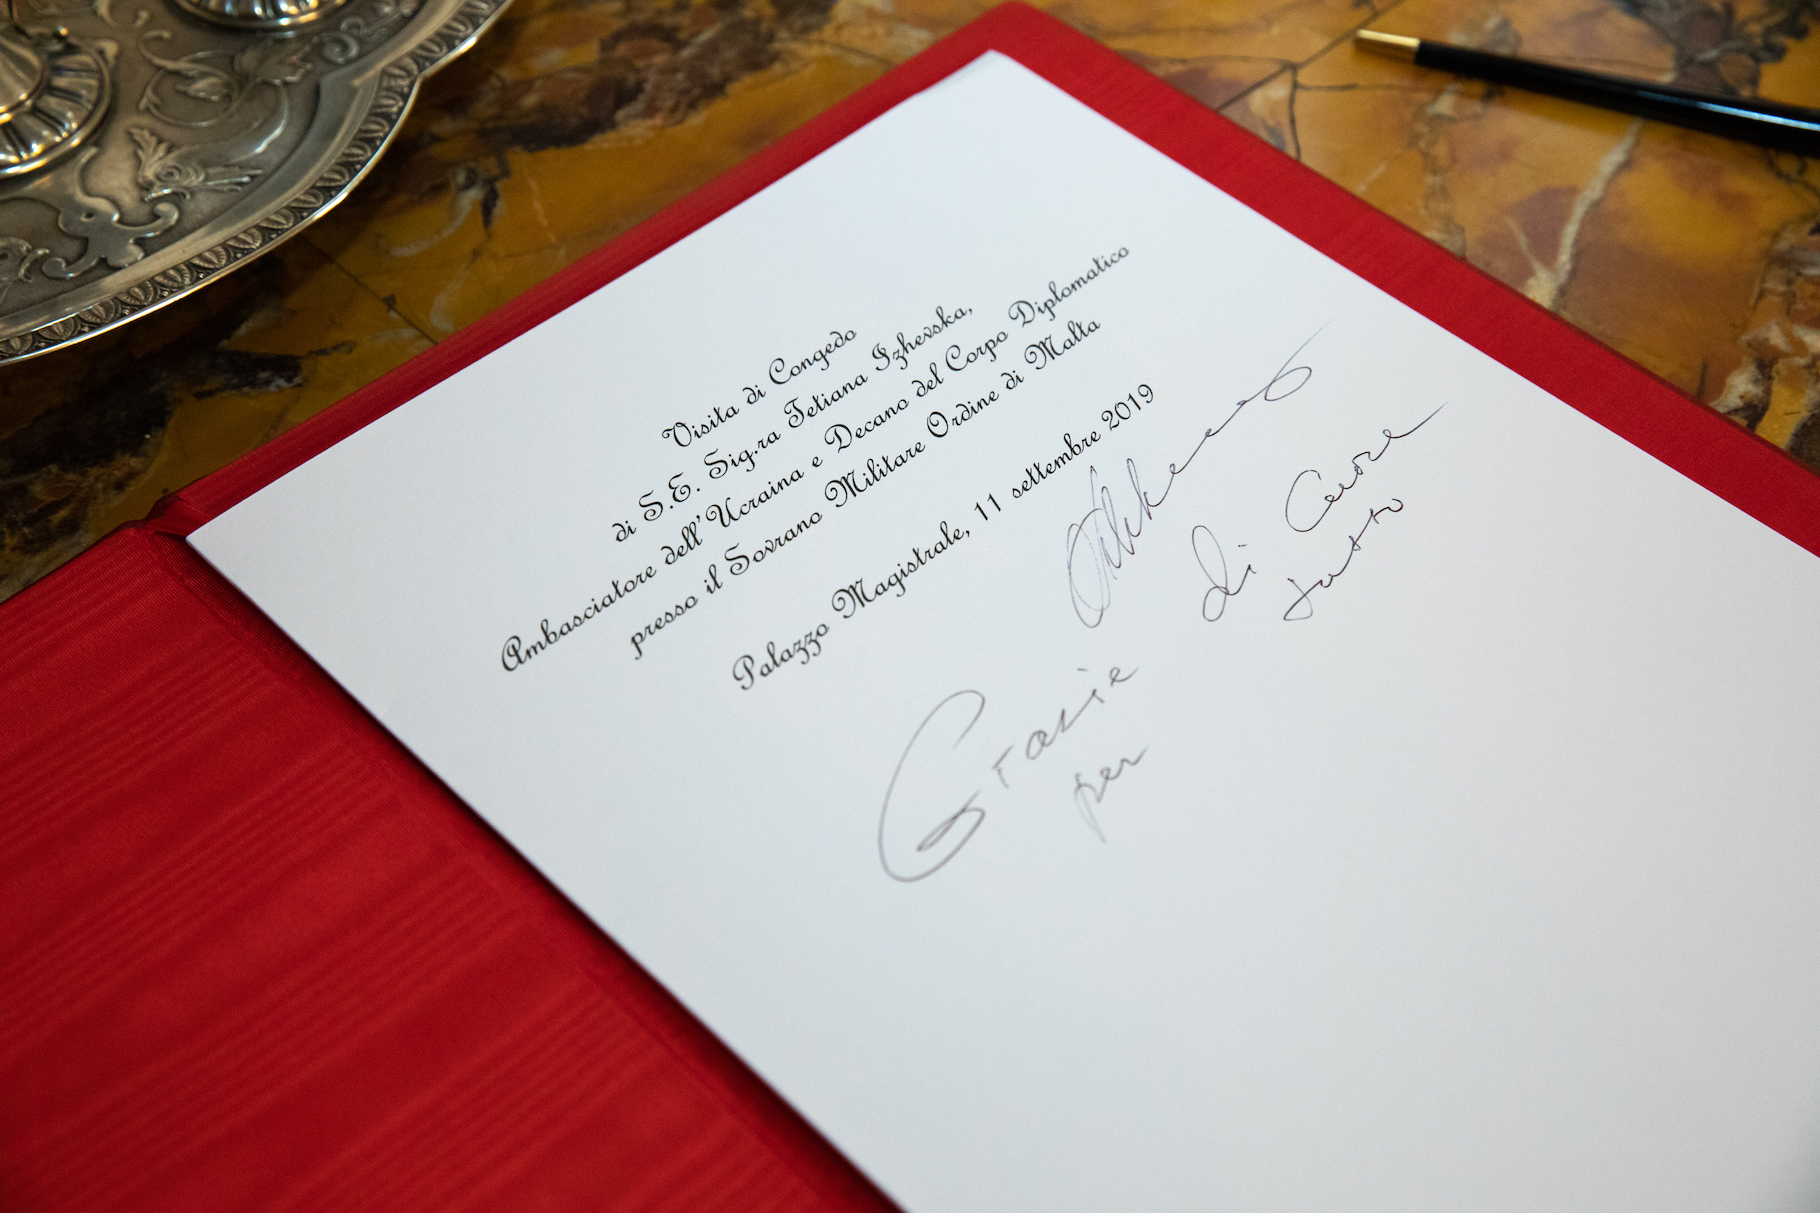 Visita di Congedo
di S.E. Sig.ra Tetiana Izhevska,
Ambasciatore dell'Ucraina e Decano del Corpo Diplomatico
presso il Sovrano Militare Ordine di Malta
Palazzo Magistrale, 11 settembre 2019
Grazie di Cuore
per tutto